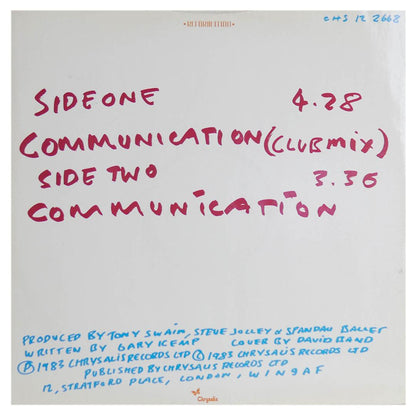 •REFORMATION•
CHS 12 2668
SIDE ONE 4.28
COMMUNICATION (CLUB MIX)
SIDE TWO 3.30
COMMUNICATION
PRODUCED BY TONY SWAIN, STEVE JOLLEY & SPANDAU BALLET
WRITTEN BY GARY KEMP COVER BY DAVID BAND
Ⓟ 1983 CHRYSALIS RECORDS LTD © 1983 CHRYSALIS RECORDS LTD
PUBLISHED BY CHRYSALIS RECORDS LTD
12, STRATFORD PLACE, LONDON, W1N9AF
Chrysalis